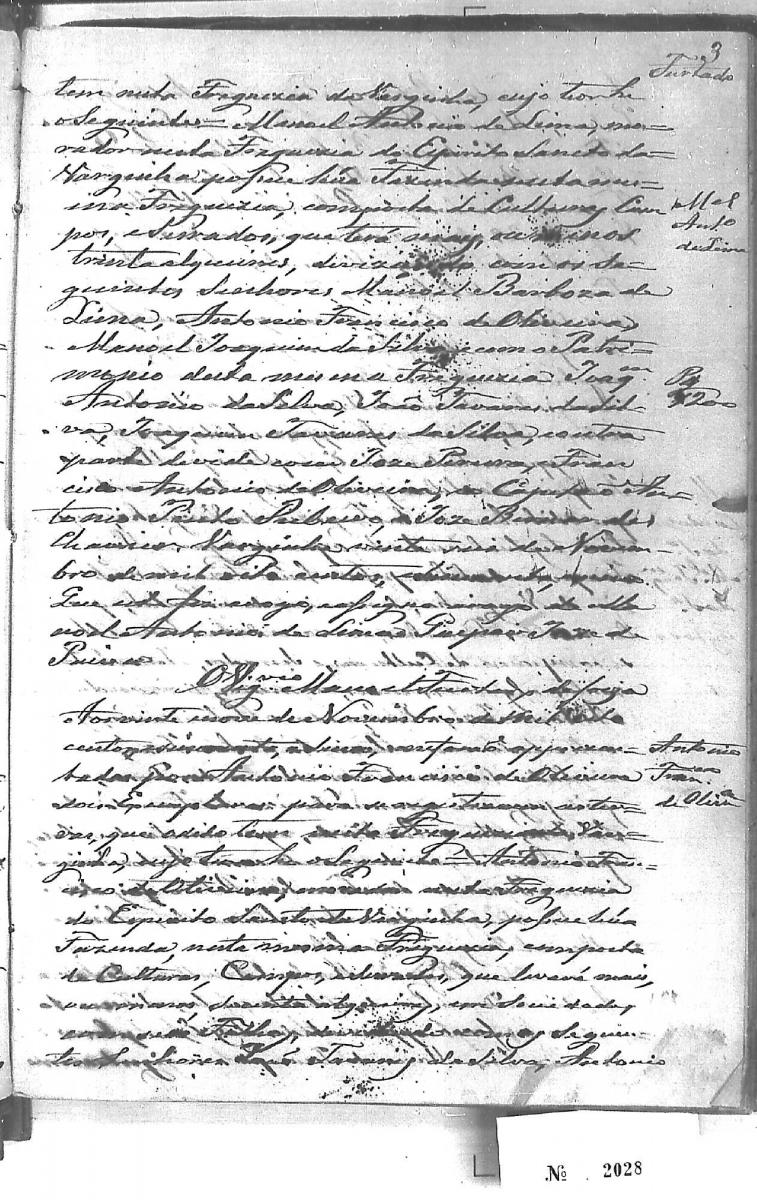 3
Furtado
tem nesta Freguezia da Varginha, cujo thior he
o Seguinte = Manoel Antonio de Lima, mo-
rador nesta Freguezia do Espirito Sancto da
Varginha possue hũa Fazenda nesta mes-
ma Freguezia, composta de Culturas, Cam-
pos, e Serrados, que terá mais, ou menos
trinta alqueires, divizando com os Se-
guintes Senhores Manoel Barboza de
Lima, Antonio Francisco de Oliveira,
Manoel Joaquim da Silva, e com o Patri-
monio desta mesma Freguezia Joaqm
Antonio da Silva, João Tavares da Sil-
va, Joaquim Tavares da Silva, e outra
parte divide com Joze Pereira, e Fran
cisco Antonio de Oliveira, e o Capitão An-
tonio Pinto Ribeiro, e Joze
Varginha vinte seis de Novem-
bro de mil oito centos, e
Que este fiz a rogo, e assigno a rogo de Ma
noel Antonio de Lima = Gaspar Joze de
Paiva =
O Vigrio Manoel Furtado de Souza
Aos vinte nove de Novembro de mil oito
centos, e sincoenta, e sinco, me forão apprezen-
tados por Antonio Francisco de Oliveira
dois Exemplares para o registro das ter-
ras, que o dito tem nesta Freguezia da Var-
ginha, cujo thior he o Seguinte = Antonio Fran-
cisco de Oliveira, morador nesta Freguezia
do Espirito Sancto da Varginha, possue hũa
Fazenda, nesta mesma Freguezia, composta
de Culturas, Campos, e Serrados, que levará mais,
ou menos, alqueires, em Sociedade
com sua Filha, dividindo com os Seguin-
tes Senhores João Tavares da Silva, Antonio
Mel
Anto
de Lima
Pg
1200
Antonio
Franco
de Olivra
No 2028